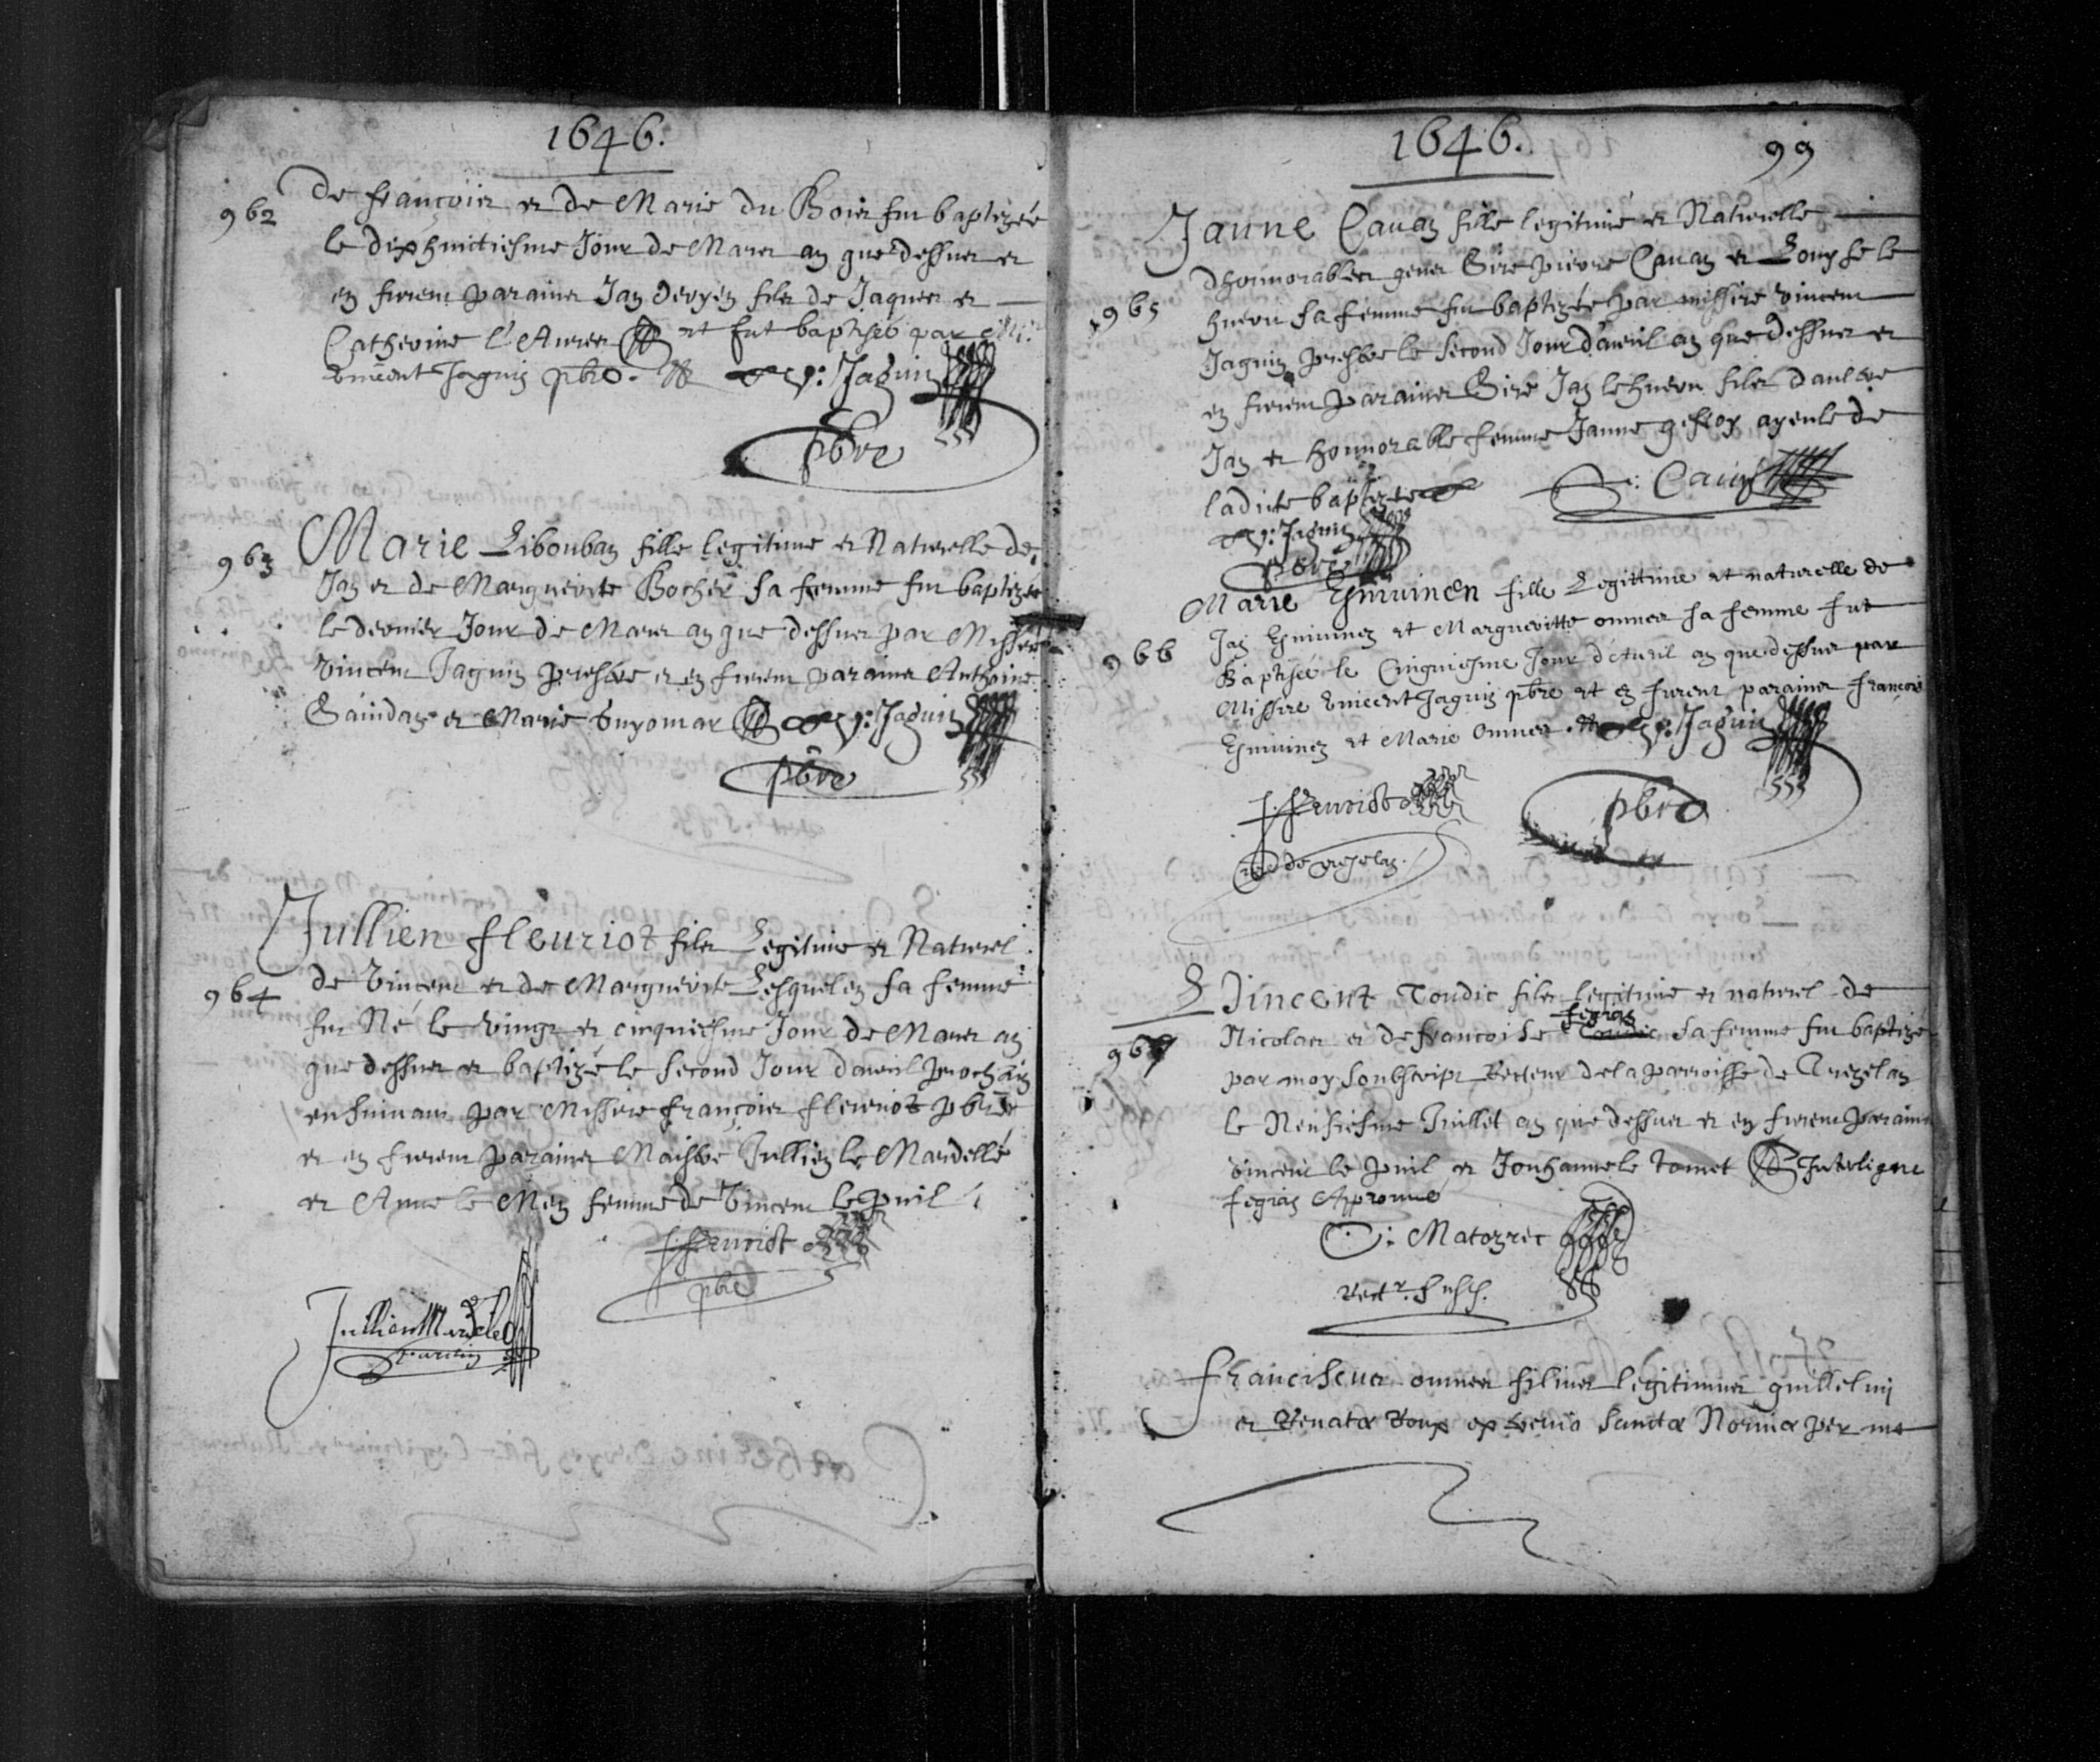 1646.
962
de françois et de Marie du Bois fut baptizée
le dixhuictiesme Jour de Mars an que dessus et
en furent parains Jan deryen fils de Jaques et
Catherine l'Aures et fut baptisée par
vincent Jaguin pbre. v: Jaguin
pbre
963
Marie Libouban fille legitime et Naturelle de
Jan et de Marguerite Bocher sa femme fut baptizée
le dernier Jour de Mars an que dessus par Missire
vincent Jaguin presbre et en furent parains Anthoine
et Marie Guyomar v: Jaguin
pbre
Jullien fleuriot fils Legitime et Naturel
964
de Vincent et de Marguerite Lesquelen sa femme
fut Né le vingt et cinquiesme Jour de Mars an
que dessus et baptizé le second Jour d'avril prochain
ensuivant par Missire françois fleuriot pbre
et en furent parains Maistre Jullien le Mardellé
et Anne le Men femme de Vincent le puil
f: fleuriot
pbre
Jullien Mardelé
parain
1646. 99
Janne Cavan fille legitime et Naturelle
dhonnorables gens Sire pierre Cavan et Louyse le
965
huerou sa femme fut baptizée par missire vincent
Jaguin presbre le second Jour d'avril an que dessus et
en furent parains Sire Jan le huerou fils d'aultre
Jan et honnorable femme Janne gefloy ayeule de
ladite baptizée
v: Jaguin
pbre
Marie fille Legittime et naturelle de
966
Jan et Margueritte omnes sa femme fut
Baptisée le Cinquiesme Jour d'Avril an que dessus par
Missire vincent Jaguin pbre et en furent parains françois
et Marie omnes. v: Jaguin
f: fleuriot
pbre
de
Vincent Toudic fils legitime et naturel de
fegean
967
Nicolas et de francoise Toudic sa femme fut baptize
par moy soubscript Recteur de la parroisse de Trezelan
le Neufiesme Juillet an que dessus et en furent parains
vincent le puil et Jouhanne le tomet Interligne
fegean Approuvé
Matozrec
Rectr.
franciscus omnes filius legitimus guillelmi
et Renatæ Roux ex Sanctæ per me